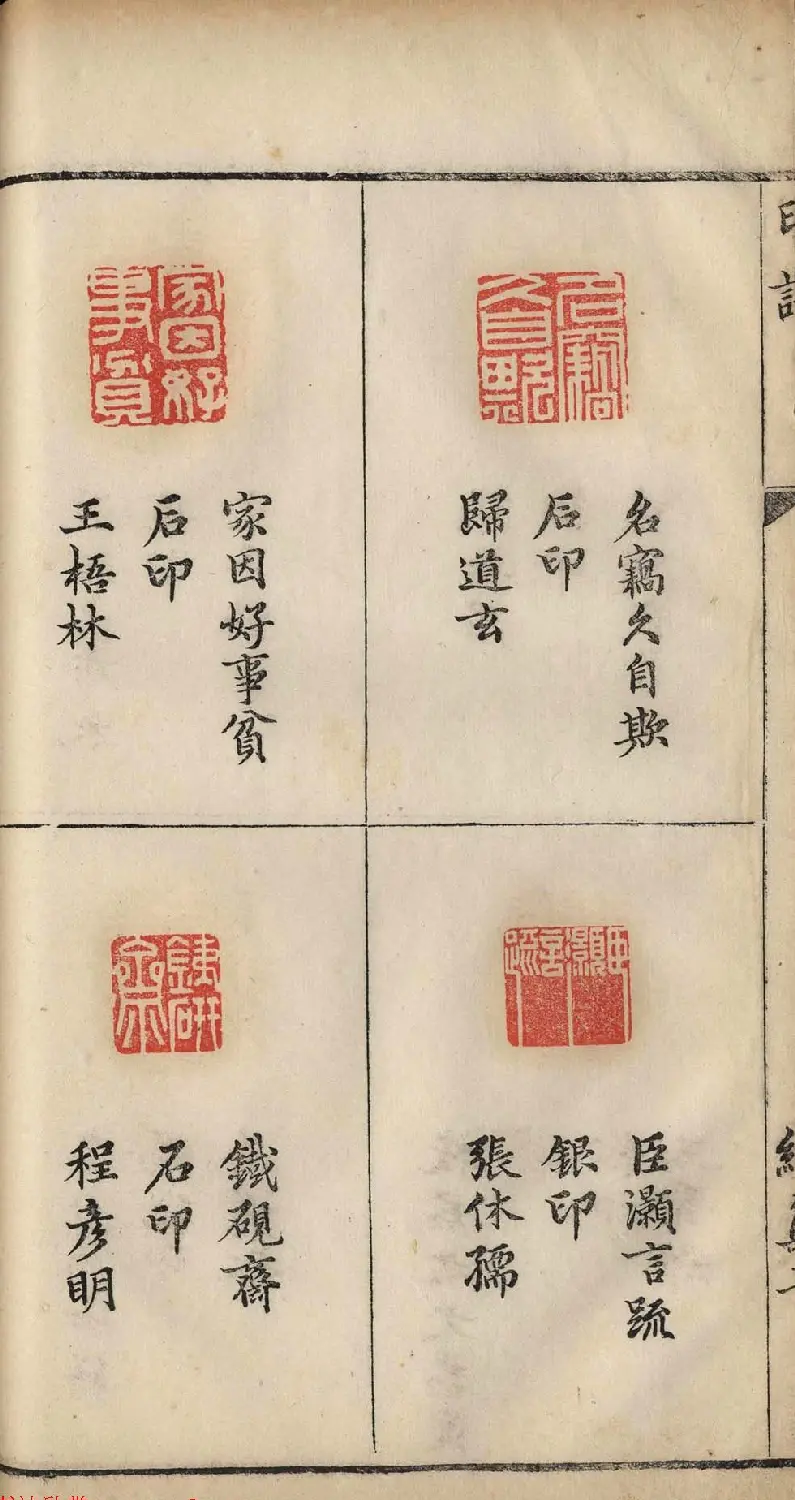 名竊久自欺
石印
歸道玄
臣灝言疏
銀印
張休孺
家因好事貧
石印
王梧林
鐵硯齋
石印
程彥明